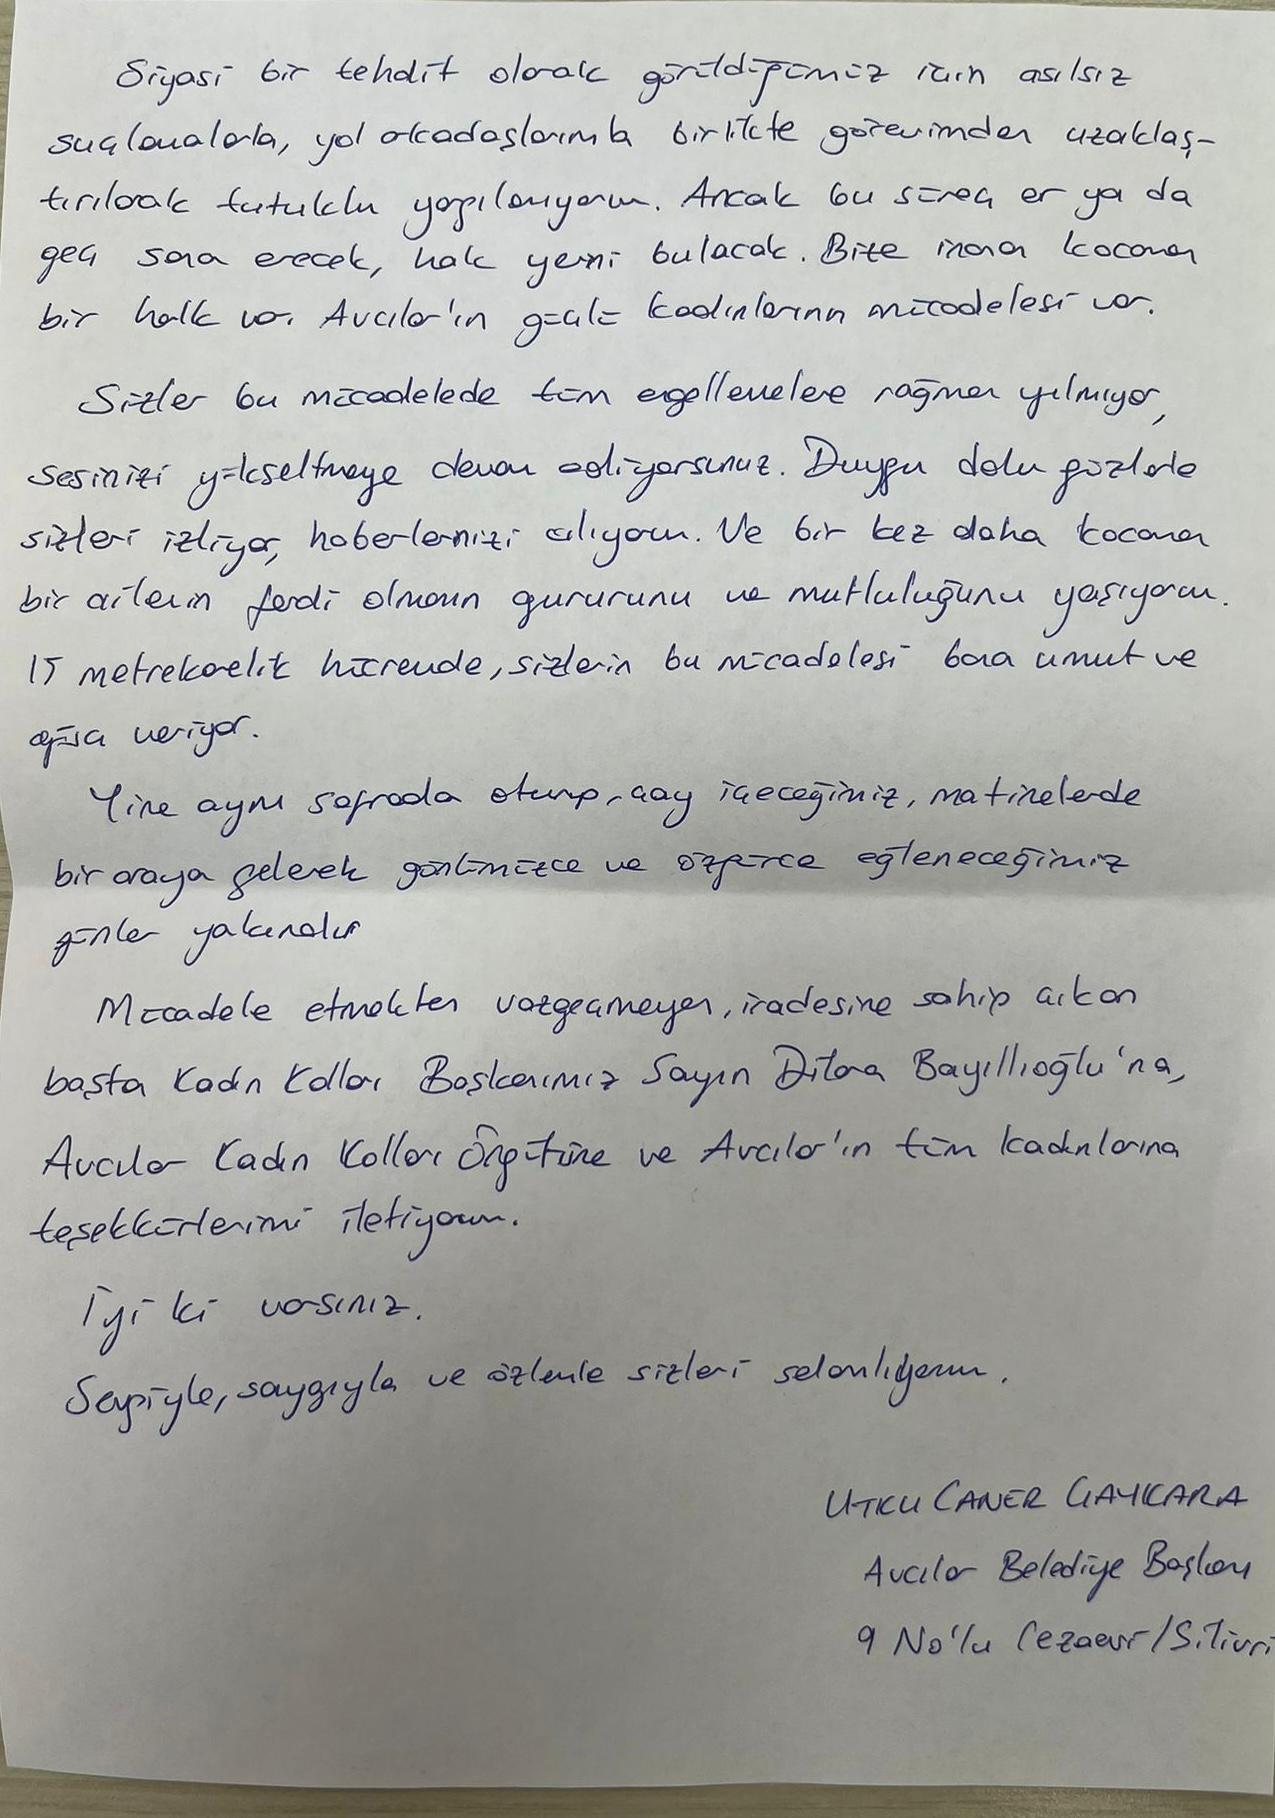 Siyasi bir tehdit olarak görüldüğümüz için asılsız
suçlamalarla, yol arkadaşlarımla birlikte görevimden uzaklaş-
tırılarak tutuklu yargılanıyorum. Ancak bu süreç er ya da
geç sona erecek, hak yerini bulacak. Bize inanan kocaman
bir halk var. Avcılar'ın güçlü kadınlarının mücadelesi var.
Sizler bu mücadelede tüm engellemelere rağmen yılmıyor,
sesinizi yükseltmeye devam ediyorsunuz. Duygu dolu gözlerle
sizleri izliyor, haberlerinizi alıyorum. Ve bir kez daha kocaman
bir ailenin ferdi olmanın gururunu ve mutluluğunu yaşıyorum.
15 metrekarelik hücremde, sizlerin bu mücadelesi bana umut ve
güç veriyor.
Yine aynı sofrada oturup, çay içeceğimiz, matinelerde
bir araya gelerek gönlümüzce ve özgürce eğleneceğimiz
günler yakındır
Mücadele etmekten vazgeçmeyen, iradesine sahip çıkan
başta Kadın Kolları Başkanımız Sayın Dilara Bayıllıoğlu'na,
Avcılar Kadın Kolları Örgütüne ve Avcılar'ın tüm kadınlarına
teşekkürlerimi iletiyorum.
İyi ki varsınız.
Sevgiyle, saygıyla ve özlemle sizleri selamlıyorum.
UTKU CANER ÇAYKARA
Avcılar Belediye Başkanı
9 No'lu Cezaevi/Silivri